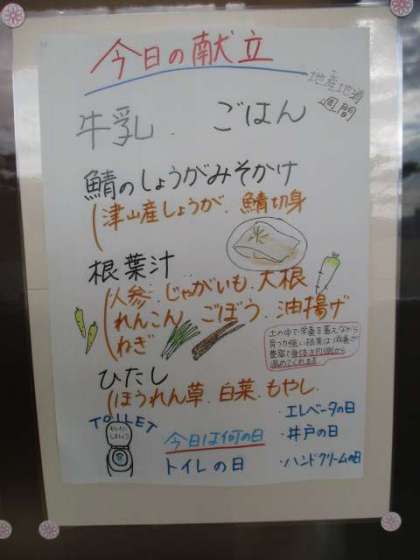 今日の献立
地産地消
週間
牛乳. ごはん
鯖のしょうがみそかけ
津山産しょうが. 鯖切身
根葉汁
人参. じゃがいも. 大根
れんこん ごぼう. 油揚げ
ねぎ
土の中で栄養を蓄えながら
育つ力強い根菜は
から
温めてくれる
ひたし
ほうれん草. 白菜. もやし
TOILET
今日は何の日
トイレの日
・エレベータの日
・井戸の日
・ハンドクリームの日